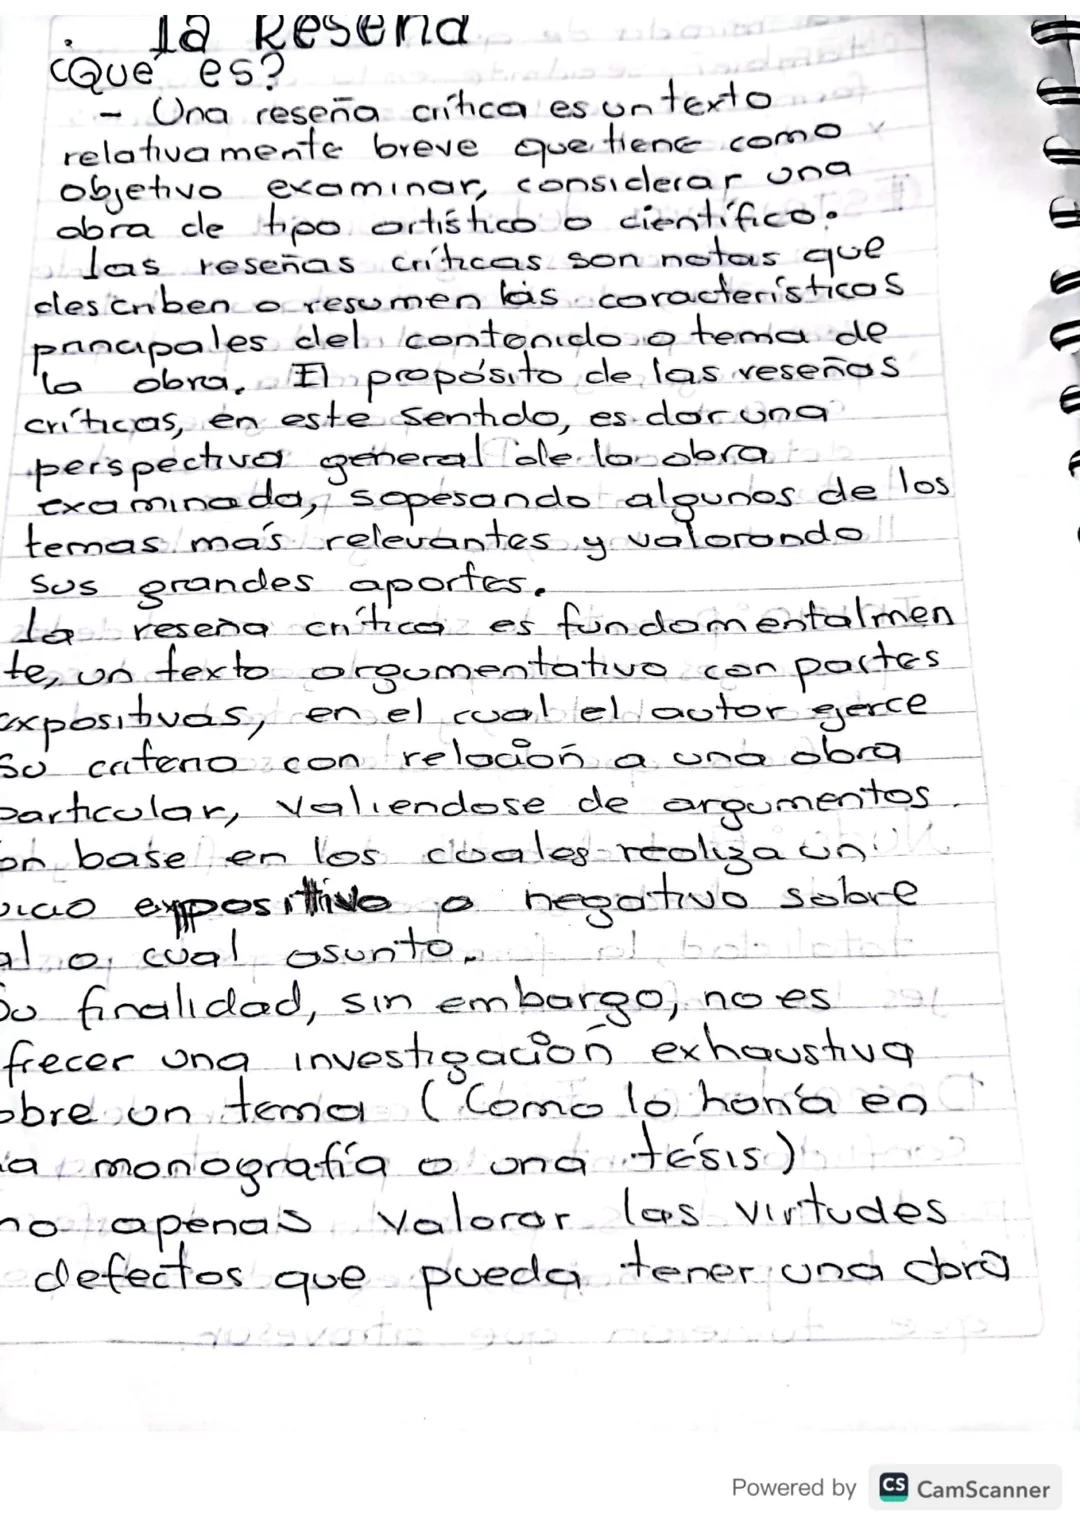 la Reseña
¿Qué es?
- Una reseña crítica es un texto
relativamente breve que tiene como
objetivo examinar, considerar una
obra de tipo artístico o científico.
las reseñas críticas son notas que
describen o resumen las características
principales del contenido o tema de
la obra. El propósito de las reseñas
críticas, en este sentido, es dar una
perspectiva general de la obra
examinada, sopesando algunos de los
temas más relevantes y valorando
sus grandes aportes.
La reseña crítica es fundamentalmen
te, un texto argumentativo con partes
expositivas, en el cual el autor ejerce
su criterio con relación a una obra
particular, valiendose de argumentos
on base en los cuales realiza un
uicio expositivo o negativo sobre
al o cual asunto.
Su finalidad, sin embargo, no es
frecer una investigación exhaustiva
obre un tema (Como lo haría en
na monografía o una tésis)
no apenas valorar las virtudes
defectos que pueda tener una obra
Powered by CS CamScanner